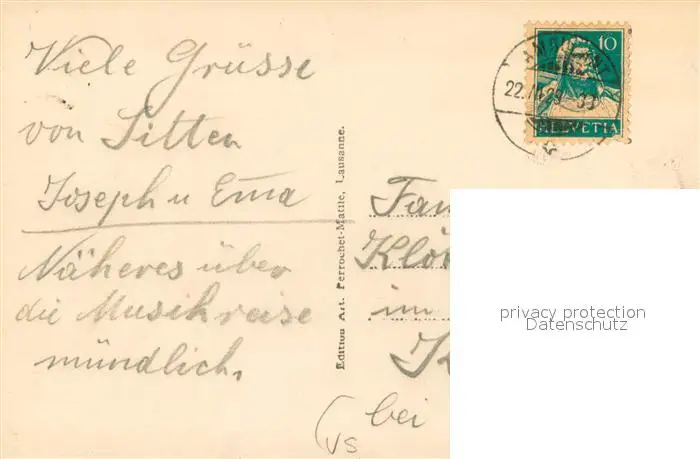 Viele Grüsse
von Sitten
Joseph u Ema
Näheres über
die Musikreise
mündlich.
Edition Art. Perrochet-Matile, Lausanne.
10
HELVETIA
22.
Fam
Klö
im
bei
VS
privacy protection
Datenschutz